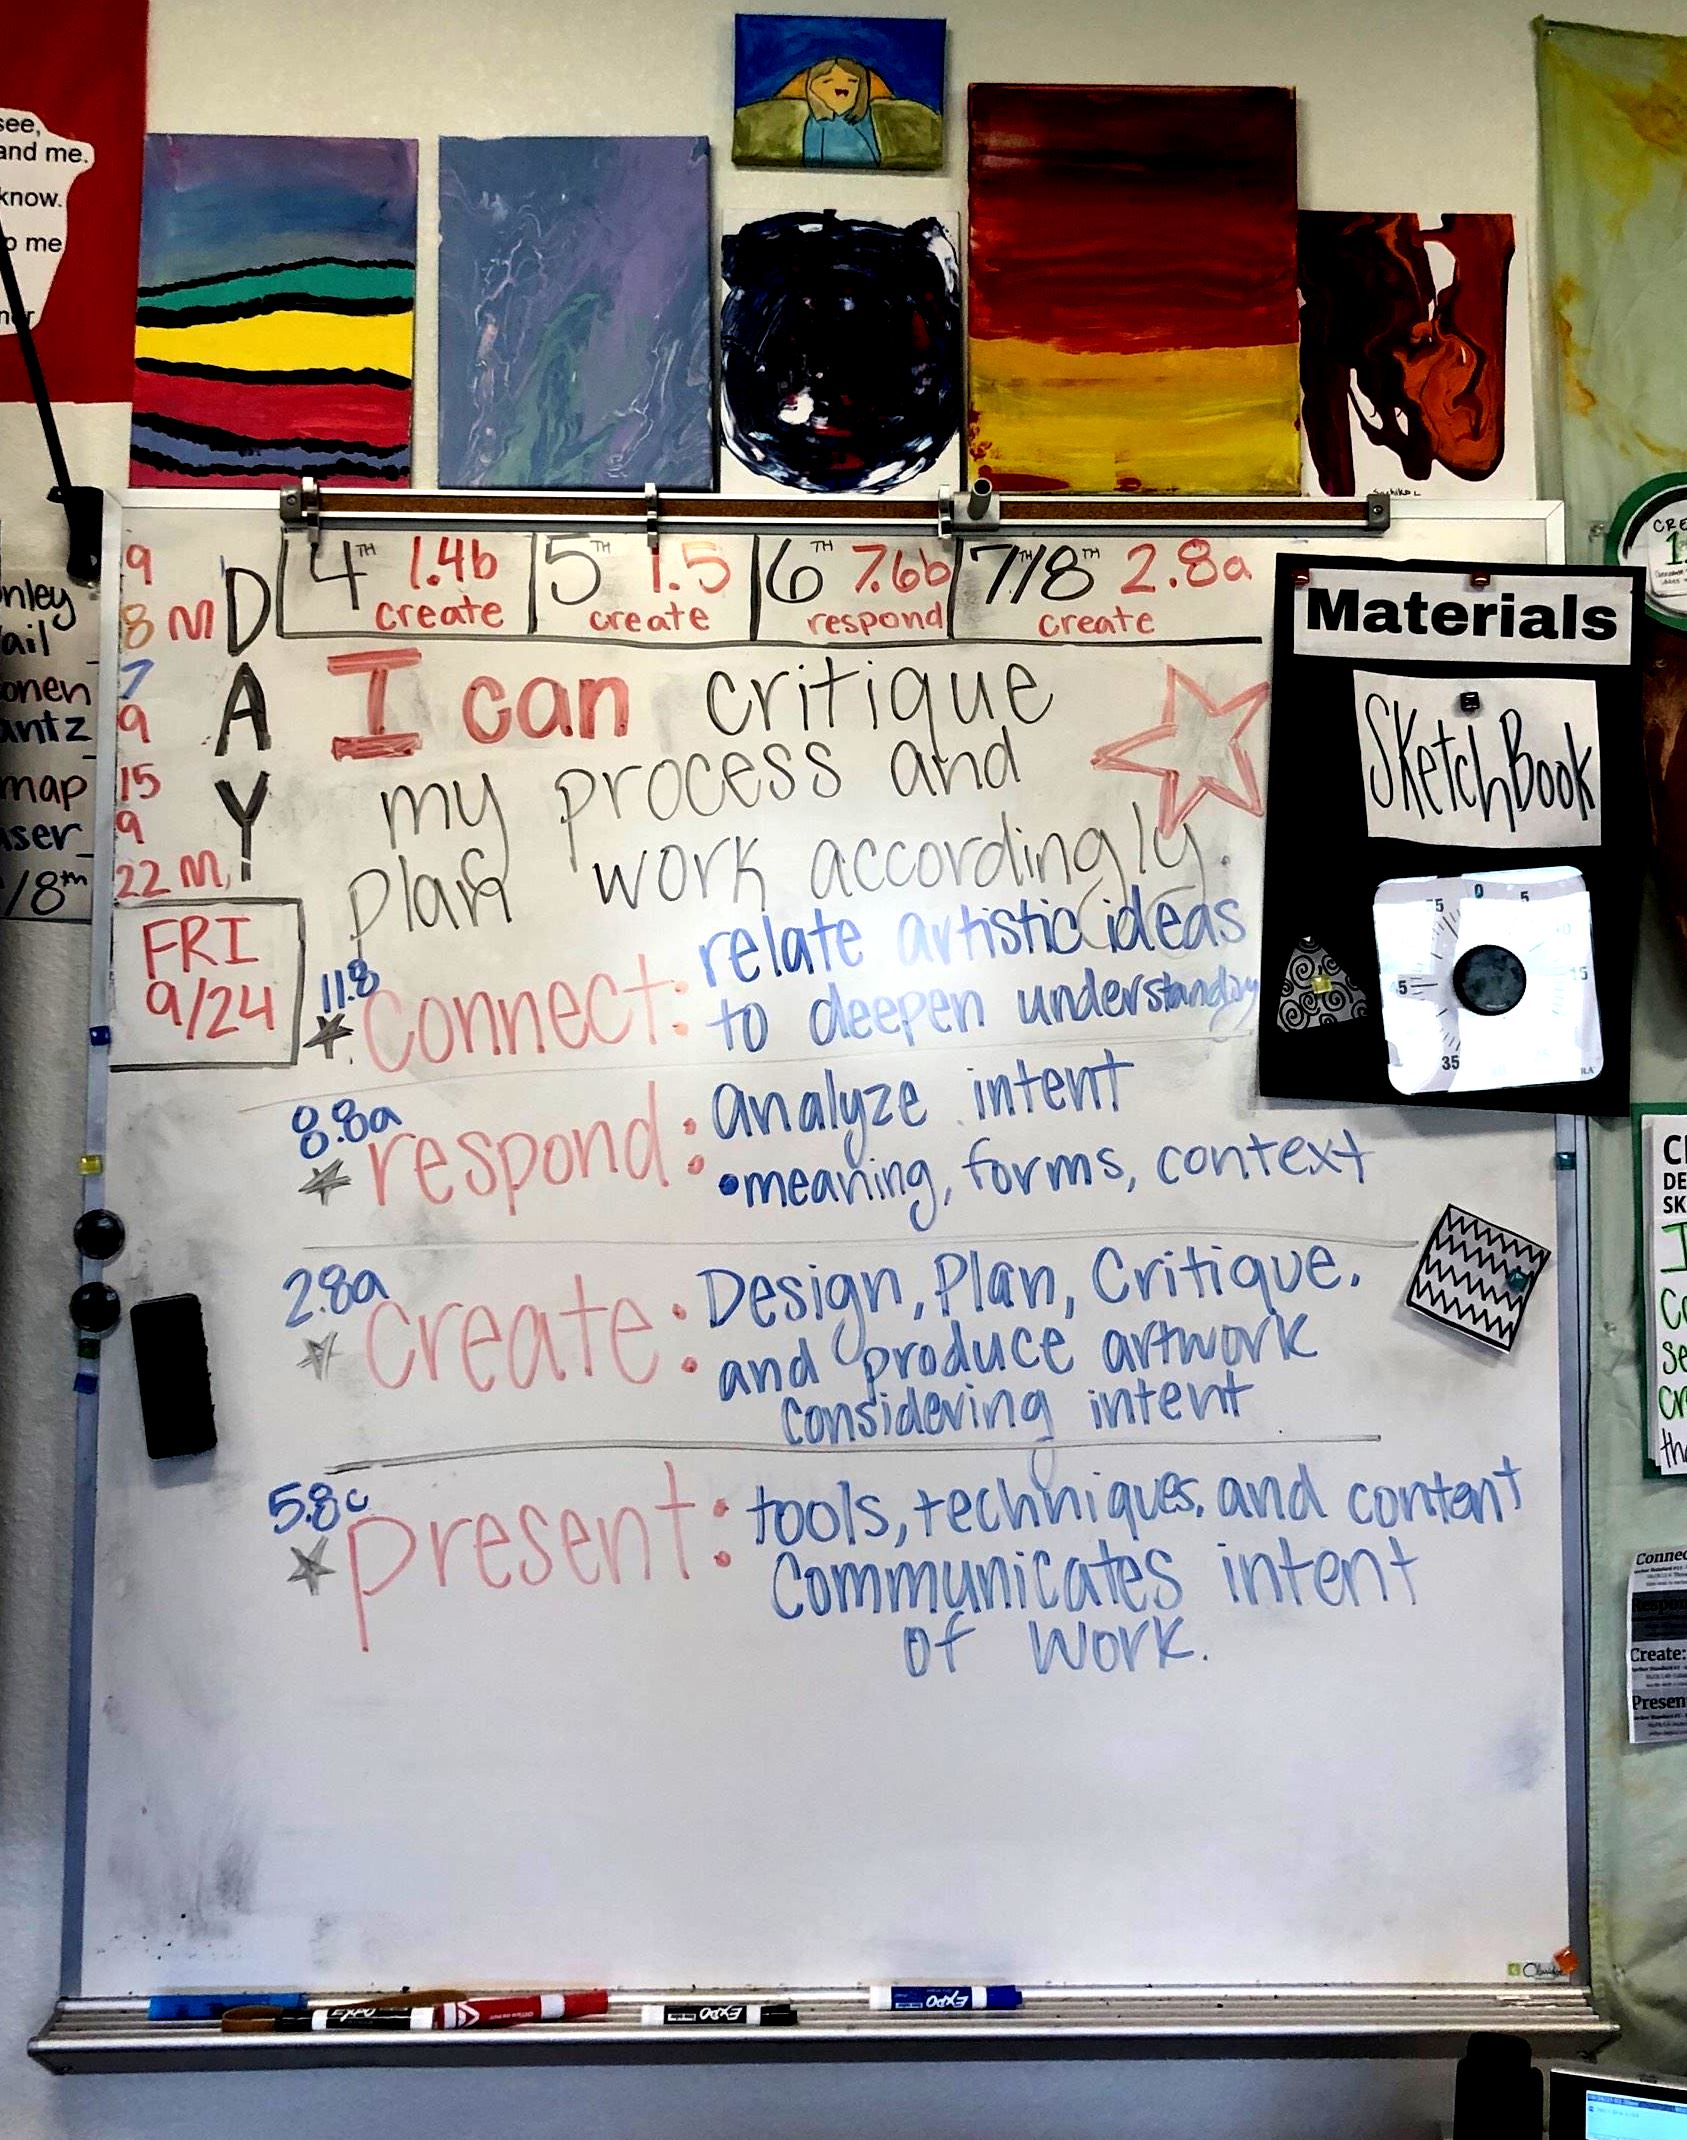 see,
and me.
know.
o me
4TH 1.4b create
5TH 1.5 create
6TH 7.6b respond
7TH/8TH 2.8a create
9
8 M
7
9
15
9
22 M
DAY
FRI
9/24
I can critique
my process and
plan work accordingly.
11.8
connect: relate artistic ideas
to deepen understanding
8.8a
respond: analyze intent
•meaning, forms, context
2.8a
create: Design, Plan, Critique.
and produce artwork
considering intent
5.8c
present: tools, techniques, and content
Communicates intent
of Work.
Materials
SketchBook
0
5
15
35
45
nley
ail
onen
antz
map
user
/8th
CRE
DE
SK
Connec
Create:
Presen
EXPO
EXPO
EXPO